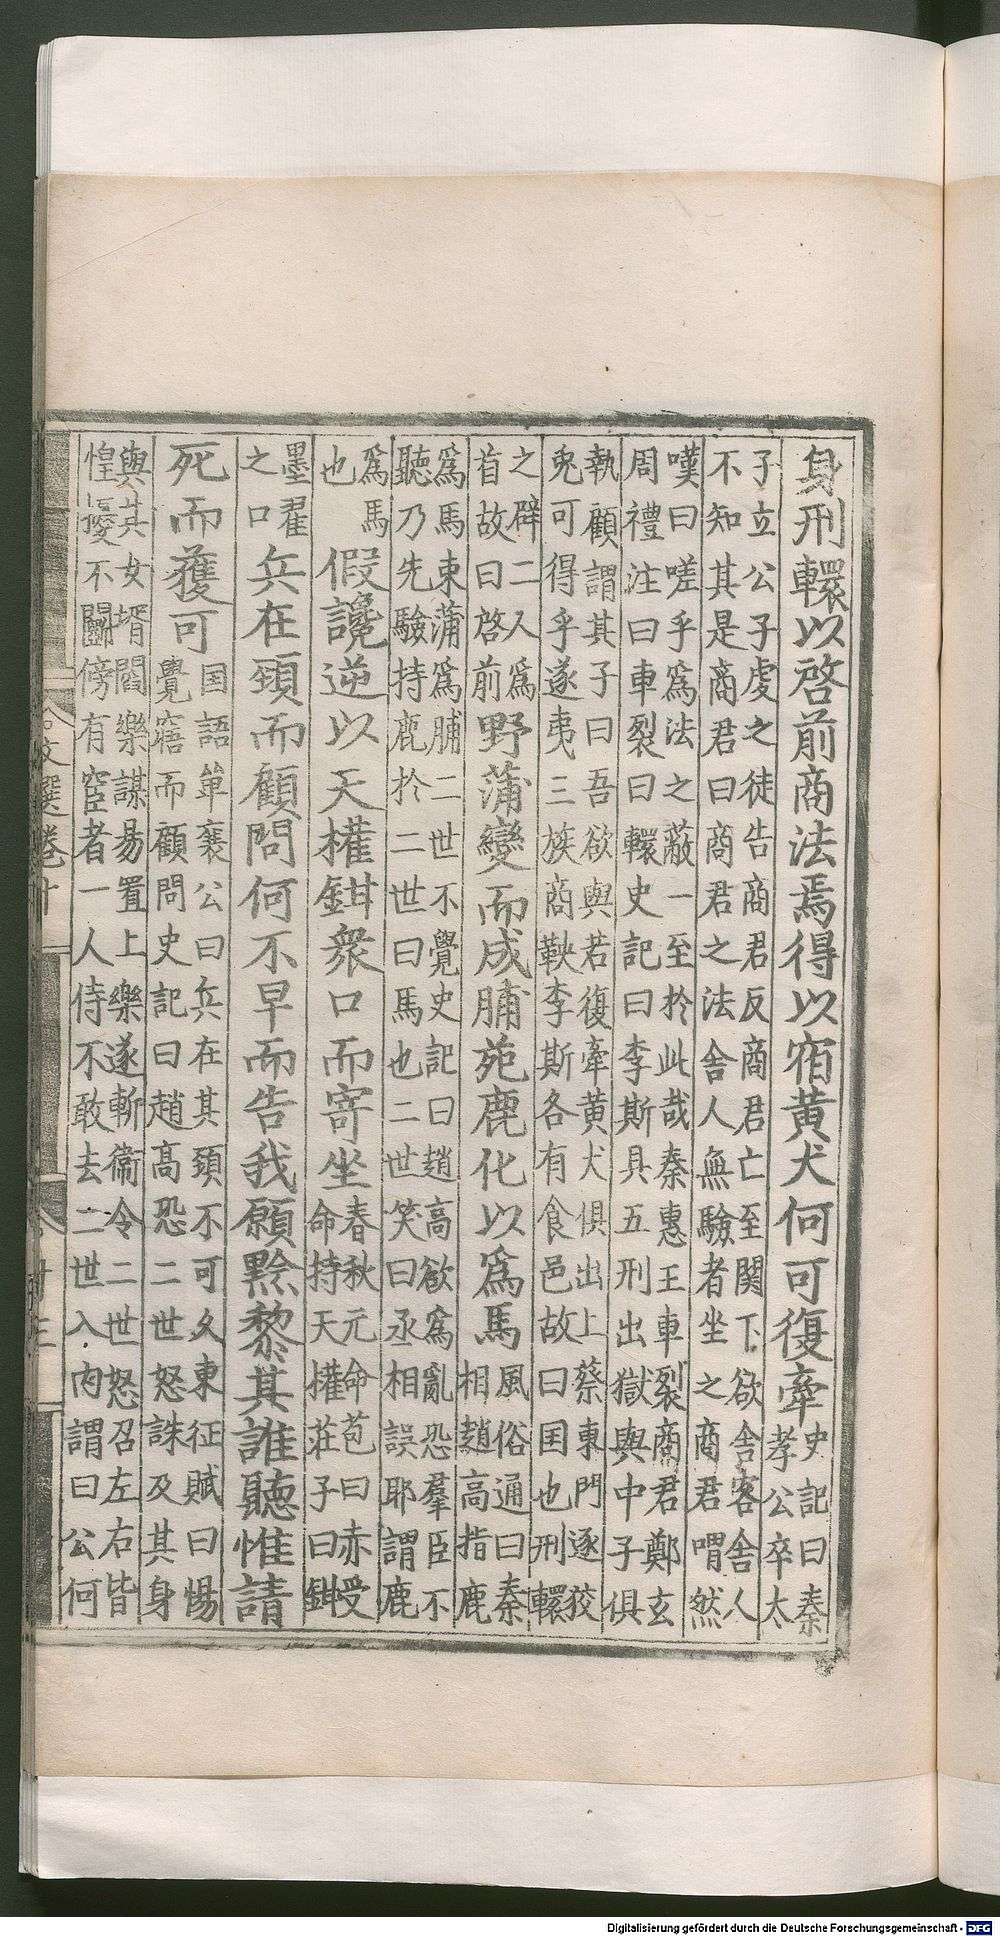 身刑轘以啓前商法焉得以宿黄犬何可復牽
史記曰秦
孝公卒太
子立公子虔之徒告商君反商君亡至関下欲舎客舎人
不知其是商君曰商君之法舎人無驗者坐之商君喟然
嘆曰嗟乎爲法之蔽一至扵此哉秦惠王車裂商君鄭玄
周禮注曰車裂曰轘史記曰李斯具五刑出獄與中子俱
執顧謂其子曰吾欲與若復牽黄犬俱出上蔡東門逐狡
兎可得乎遂夷三族商鞅李斯各有食邑故曰国也刑轘
之辟二人爲
首故曰啓前
野蒲變而成脯苑鹿化以爲馬
風俗通曰秦
相趙高指鹿
爲馬束蒲爲脯二世不覺史記曰趙高欲爲亂恐羣臣不
聽乃先驗持鹿扵二世曰馬也二世笑曰丞相誤耶謂鹿
爲馬
也
假讒逆以天權鉗衆口而寄坐
春秋元命苞曰赤受
命持天權莊子曰鉗
墨翟
之口
兵在頸而顧問何不早而告我願黔黎其誰聽惟請
死而獲可
国語單襄公曰兵在其頸不可久東征賦曰惕
覺寤而顧問史記曰趙高恐二世怒誅及其身
與其女壻閻樂謀昜置上樂遂斬衞令二世怒召左右皆
惶擾不鬭傍有宦者一人侍不敢去二世入内謂曰公何
文選卷十
廿三
Digitalisierung gefördert durch die Deutsche Forschungsgemeinschaft - DFG